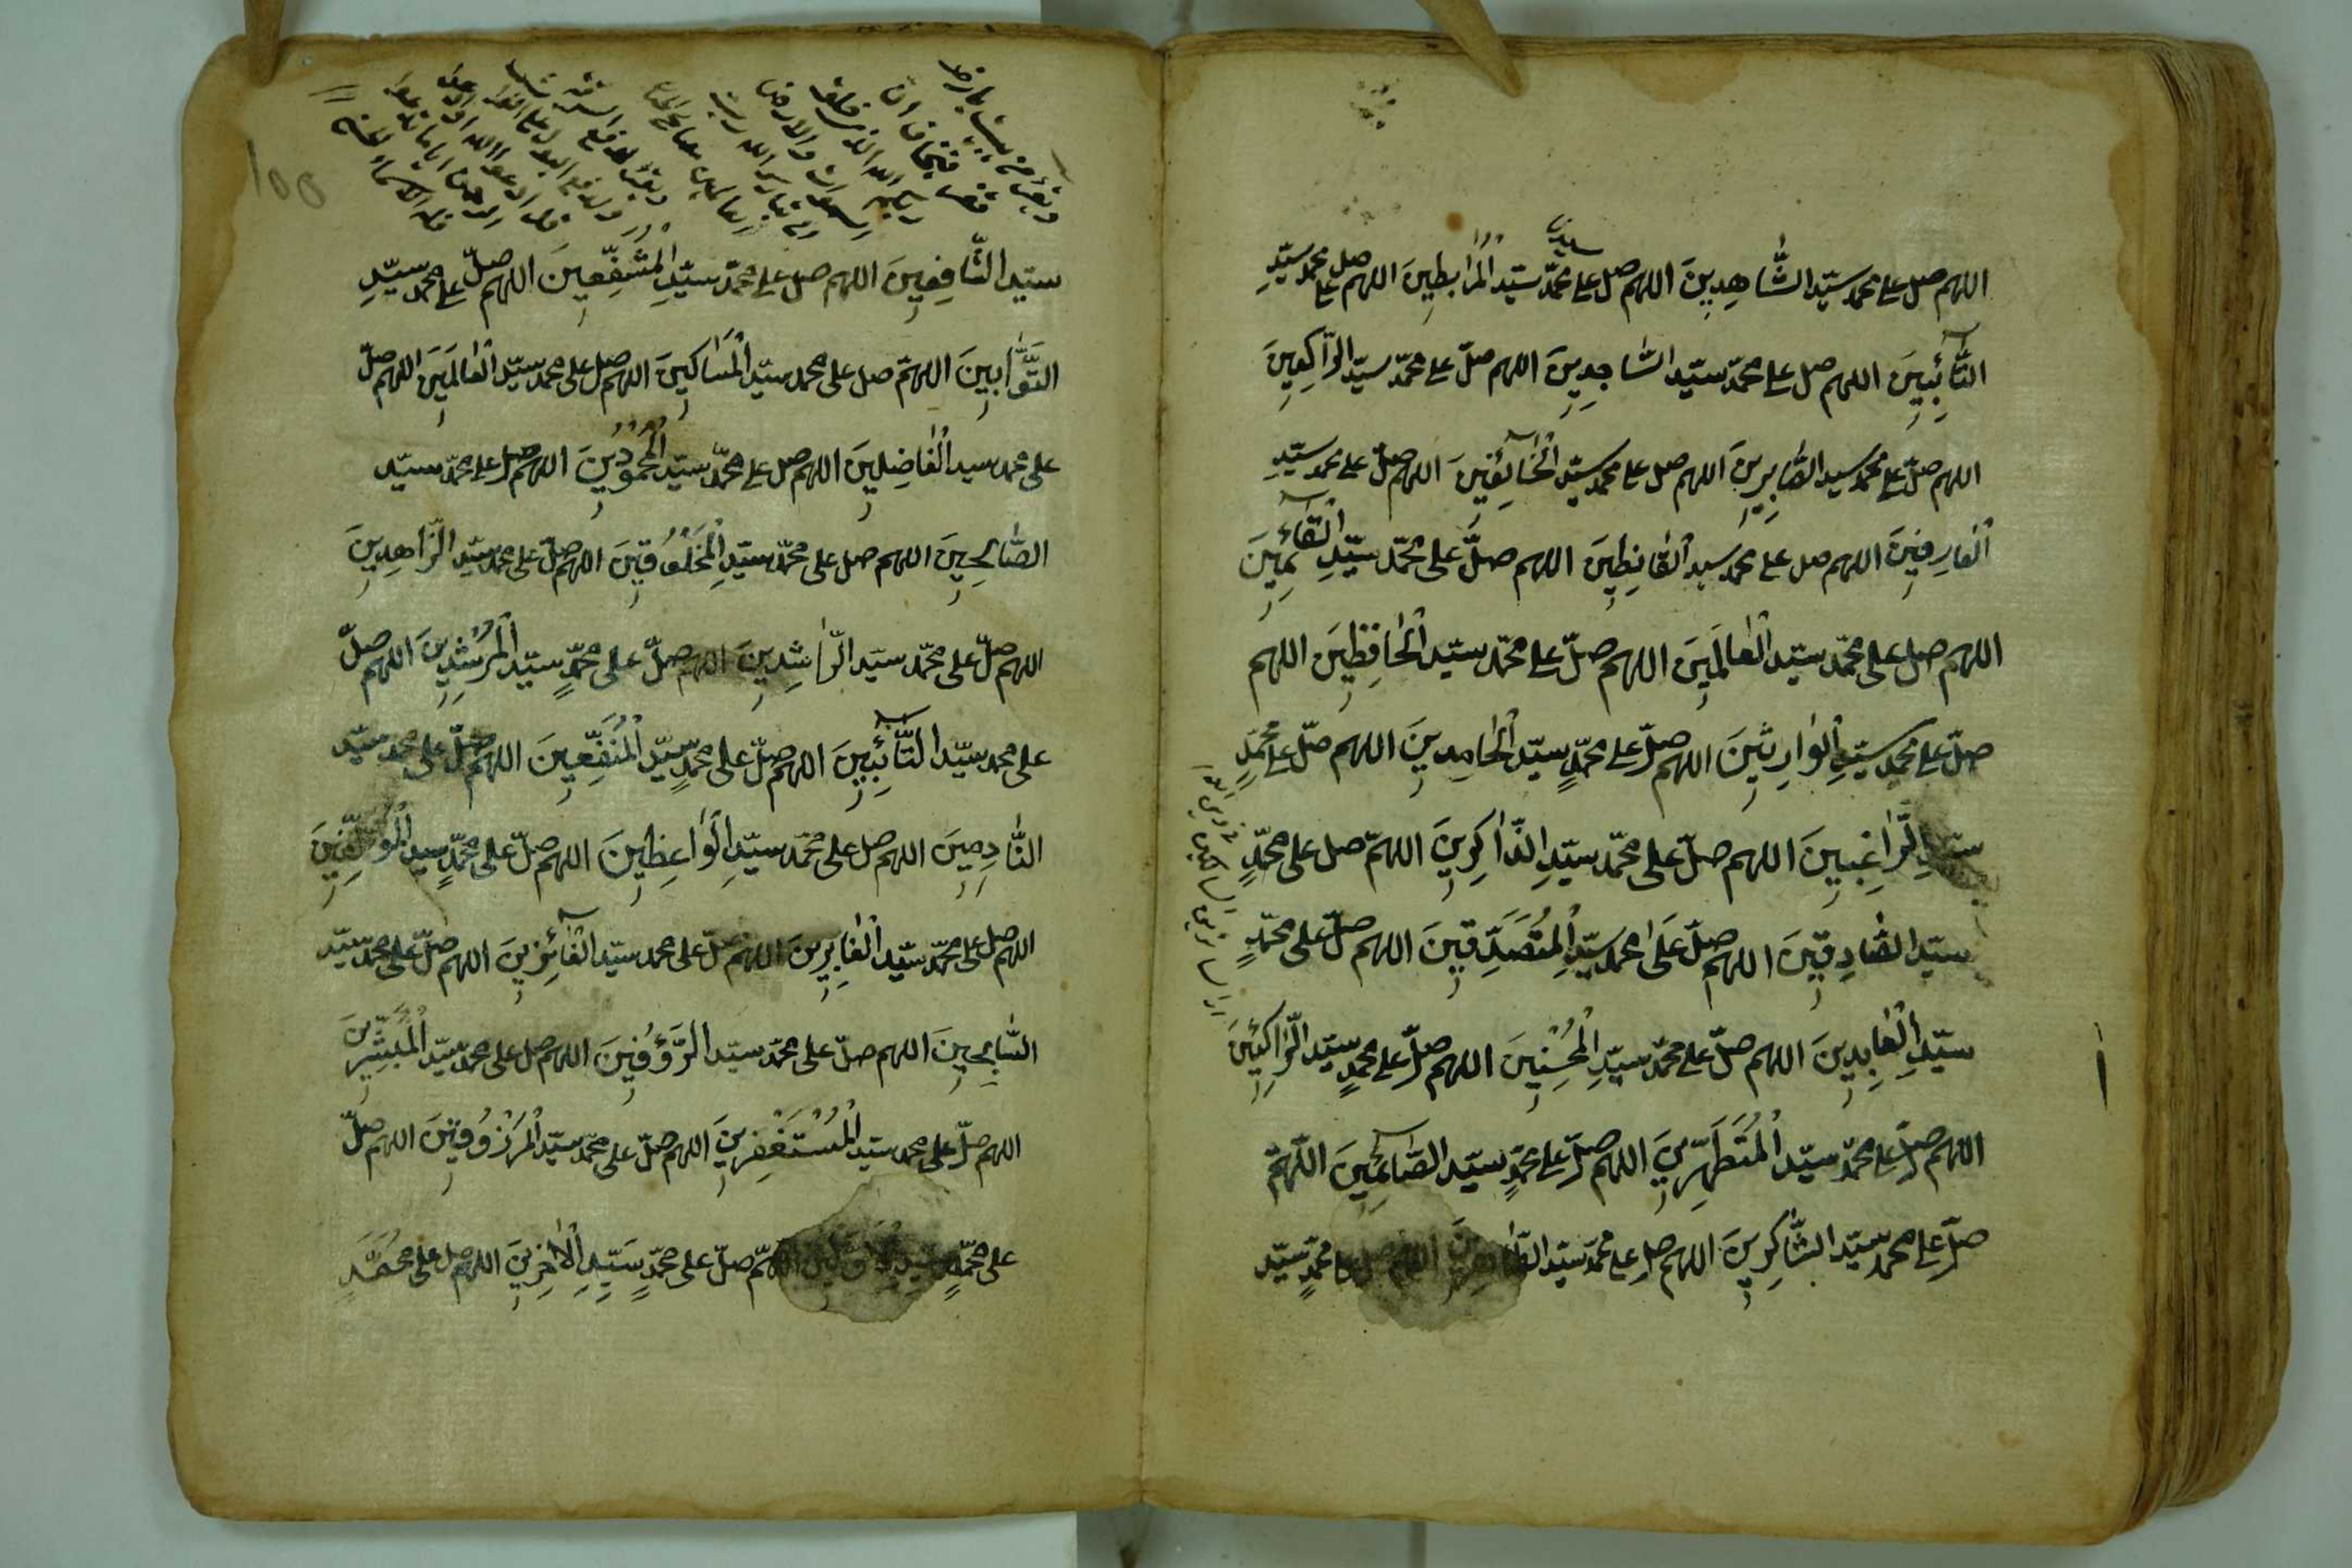 اللهم صل علی محمد سيّد الشّاهِدِينَ اللهم صل علی محمّد سيّد الْمُرَابطِينَ اللهم صل علی محمد سيّدِ
التَّآئِبِينَ اللهم صل علی محمّد سيّد السّاجِدِينَ اللهم صلّ علی محمّد سيّد الرّاكِعِينَ
اللهم صلّ علی محمد سيد الصّابِرِينَ اللهم صل علی محمد سيّد الْخَآئِفِينَ اللهم صلّ علی محمد سيّدِ
الْعَارِفِينَ اللهم صل علی محمد سيد الْقَانِطِينَ اللهم صلَّ علی محمّد سيّدِ الْقَآئِمِينَ
اللهم صل علی محمّد سيّد الْعَالَمِينَ اللهم صلّ علی محمّد سيّد الْحَافِظِينَ اللهم
صلّ علی محمد سيّدِ الْوَارِثِينَ اللهم صلّ علی محمّدٍ سيّد الْحَامِدِينَ اللهم صلّ علی محمّدٍ
سيّدِ الرَّاغِبِينَ اللهم صلّ علی محمّد سيّدِ الذّاكِرِينَ اللهمّ صل علی محمّدٍ
سيّد الصَّادِقِينَ اللهم صلّ عَلَی محمد سيّدِ الْمُتَصَدِّقِينَ اللهم صلّ علی محمّدٍ
سيّدِ الْعَابِدِينَ اللهم صلّ علی محمّد سيّدِ الْمُحْسِنِينَ اللهم صلّ علی محمدٍ سيّد الزَّاكِئِينَ
اللهم صلّ علی محمّد سيّد الْمُتَطَهِّرِينَ اللهم صلّ علی محمّدٍ سيّد الصَّآئِمِينَ اللّهمّ
صلّ علی محمد سيّد الشَّاكِرِينَ اللهم صل علی محمّد سيّد الطَّاهِرِينَ اللهم صل علی محمّدٍ سيّد
سيّد الشَّافِعِينَ اللهم صل علی محمّد سيّدِ الْمُشَفَّعِينَ اللهم صلّ علی محمد سيّدِ
التَّوَّابِينَ اللهمّ صل علی محمد سيّد الْمَسَاكِينَ اللهم صل علی محمد سيّد الْعَالَمِينَ اللهم صلّ
علی محمد سيد الْفَاضِلِينَ اللهم صل علی محمّد سيّد الْمُحْمُوُدِينَ اللهم صل علی محمّد سيّد
الصَّالِحِينَ اللهم صل علی محمّد سيّدِ الْمَخْلُوقِينَ اللهم صلّ علی محمد سيّد الزّاهِدِينَ
اللهم صلّ علی محمّد سيّد الرّاشِدِينَ اللهم صلّ علی محمّدٍ سيّد الْمُرْشِدِينَ اللهم صلّ
علی محمد سيّد التَّآئِبِينَ اللهم صلّ علی محمّدٍ سيّد الْمُنَفِّعِينَ اللهم صلّ علی محمد سيّد
النَّادِمِينَ اللهم صل علی محمّد سيّدِ الْوَاعِظِينَ اللهم صلّ علی محمّدٍ سيد
اللهم صل علی محمّد سيّد الْغَابِرِينَ اللهم صلّ علی محمد سيّد الْفَآئِزِينَ اللهم صلّ علی محمّد سيّد
اللهم صلّ علی محمّد سيّد الرَّؤُفِينَ اللهم صل علی محمّد سيّد الْمُبَشِّرِينَ
اللهم صلّ علی محمد سيّد الْمُسْتَغْفِرِينَ اللهم صلّ علی محمّد سيّد الْمَرْزُوقِينَ اللهم صلّ
علی محمّدٍ سيّدِ الْأوّلين اللهمّ صلّ علی محمّدٍ سَيّدِ الْاخِرِينَ اللهم صل علی مُحَمَّدٍ